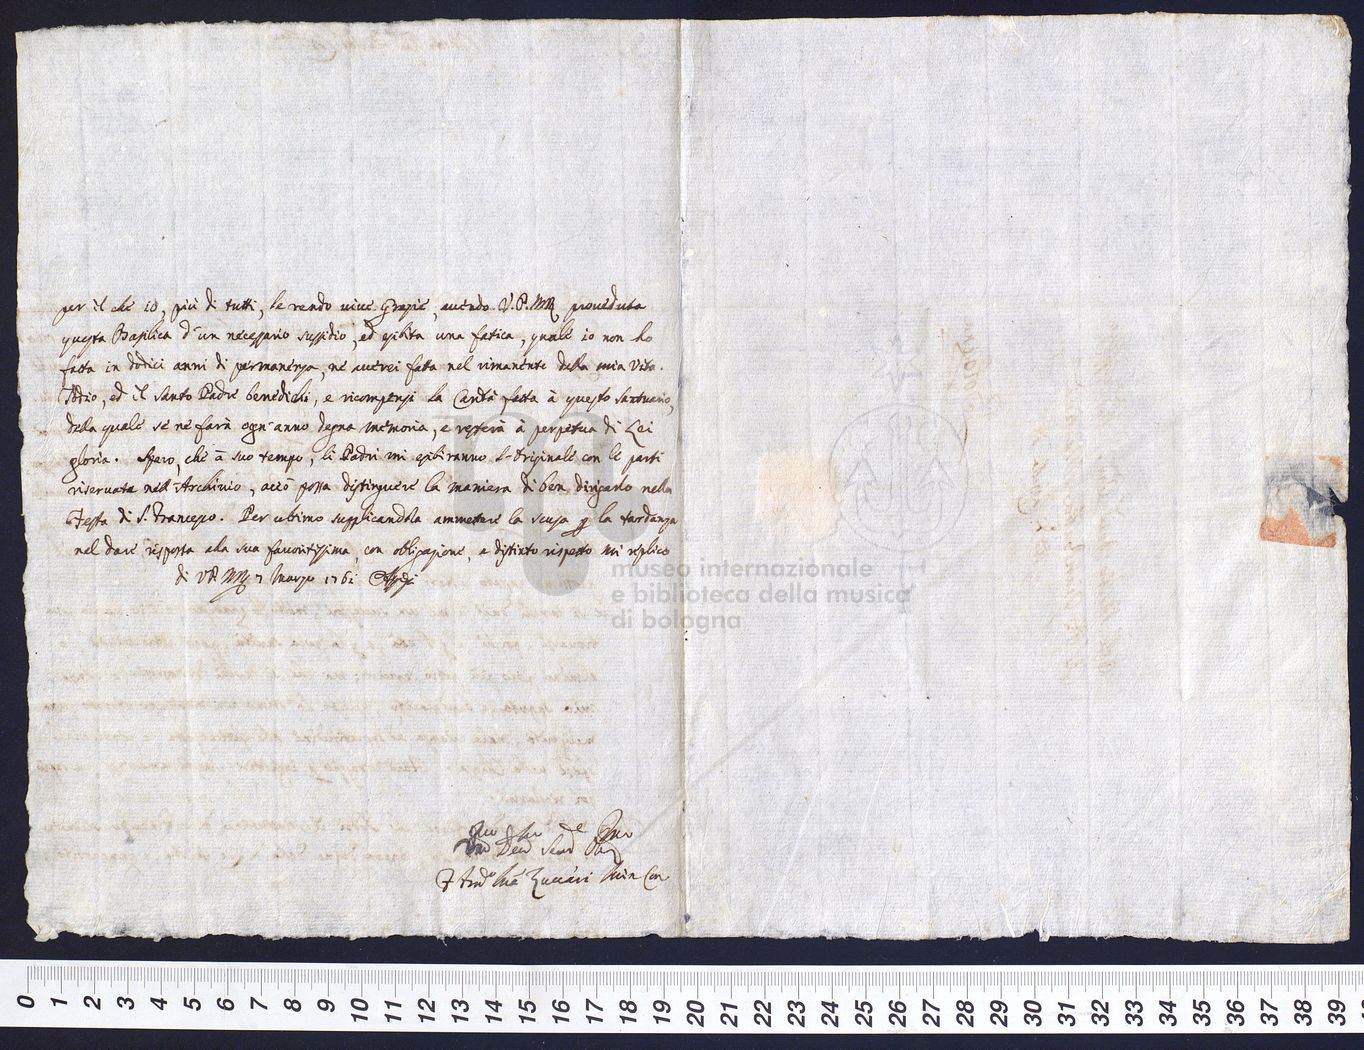 per il che io, più di tutti, le rendo vive grazie, avendo V. P. M R proveduta
questa Basilica d'un necessario sussidio, ed esibita una fatica, quale io non ho
fatta in dodici anni di permanenza, nè averei fatta nel rimanente della mia vita.
Iddio, ed il Santo Padre benedichi, e ricompensi la Carità fatta à questo santuario,
della quale se ne farà ogn'anno degna memoria, e resterà à perpetua di Lei
gloria. Spero, che à suo tempo, li Padri mi esibiranno l'originale con le parti
riservata nell'Archivio, acciò possa distinguere la maniera di ben dirigerlo nella
Festa di S. Francesco. Per ultimo supplicandola ammettere la scusa p la tardanza
nel dare risposta alla sua favoritissima, con obligazione, e distinto rispetto mi replico
di V P M R 7 Marzo 1761 Assisi
Dev Serv
Zuccari Min Con
museo internazionale
e biblioteca della musica
di bologna
0 1 2 3 4 5 6 7 8 9 10 11 12 13 14 15 16 17 18 19 20 21 22 23 24 25 26 27 28 29 30 31 32 33 34 35 36 37 38 39